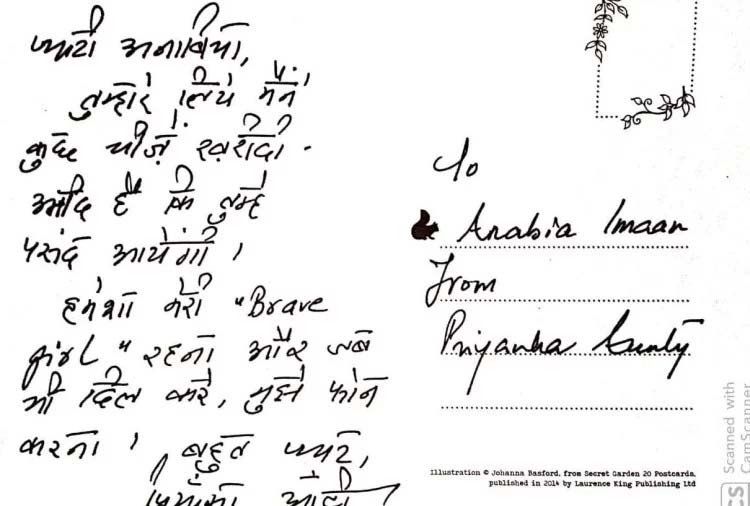 प्यारी अनाबिया,
तुम्हारे लिये मैंने
कुछ चीज़ें खरीदी.
उम्मीद है कि तुम्हें
पसंद आयेंगी।
हमेशा मेरी "Brave
girl" रहना और जब
भी दिल करे, मुझे फोन
करना। बहुत प्यार,
प्रियंका आंटी
To
Anabia Imaan
From
Priyanka
Illustration © Johanna Basford, from Secret Garden 20 Postcards,
published in 2014 by Laurence King Publishing Ltd
Scanned with
CamScanner
CS